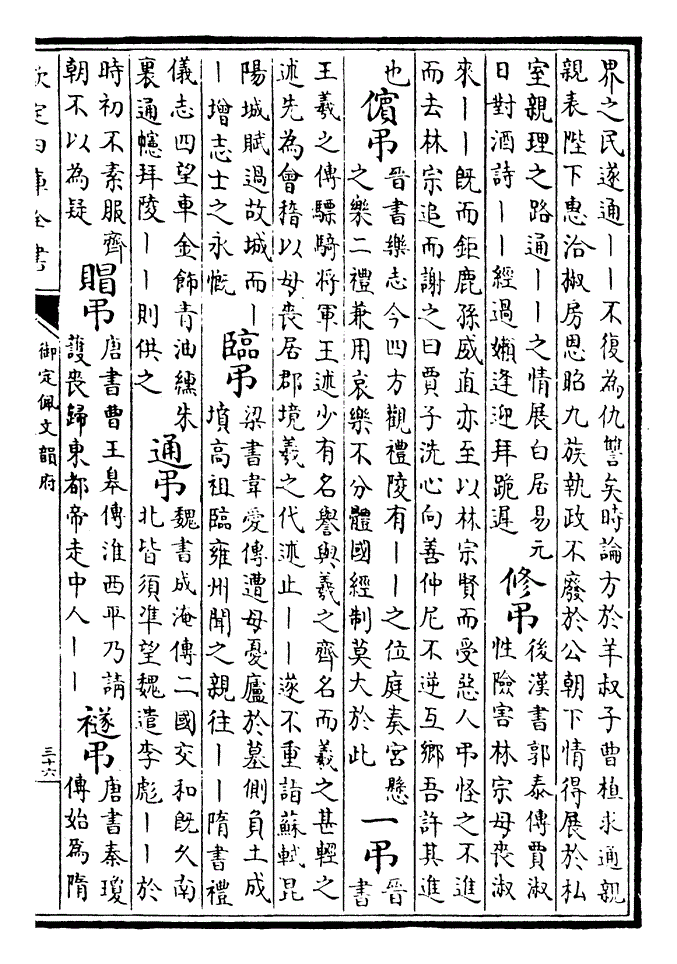 界之民遂通丨丨不復為仇讐矣時論方於羊叔子曹植求通親
親表陛下惠洽椒房恩昭九族執政不廢於公朝下情得展於私
室親理之路通丨丨之情展白居易元
日對酒詩丨丨經過嬾逢迎拜跪遲
修弔
後漢書郭泰傳賈淑
性險害林宗母喪淑
來丨丨既而鉅鹿孫威直亦至以林宗賢而受惡人弔怪之不進
而去林宗追而謝之曰賈子洗心向善仲尼不逆互鄉吾許其進
也
儐弔
晉書樂志今四方觀禮陵有丨丨之位庭奏宮懸
之樂二禮兼用哀樂不分體國經制莫大於此
一弔
晉
書
王羲之傳驃騎將軍王述少有名譽與羲之齊名而羲之甚輕之
述先為會稽以母喪居郡境羲之代述止丨丨遂不重詣蘇軾昆
陽城賦過故城而丨
丨增志士之永慨
臨弔
梁書韋愛傳遭母憂廬於墓側負土成
墳高祖臨雍州聞之親往丨丨隋書禮
儀志四望車金飾青油纁朱
裏通幰拜陵丨丨則供之
通弔
魏書成淹傳二國交和既久南
北皆須準望魏遣李彪丨丨於
時初不素服齊
朝不以為疑
賵弔
唐書曹王皋傳淮西平乃請
護喪歸東都帝走中人丨丨
襚弔
唐書秦瓊
傳始為隋
欽定四庫全書
御定佩文韻府
三十六